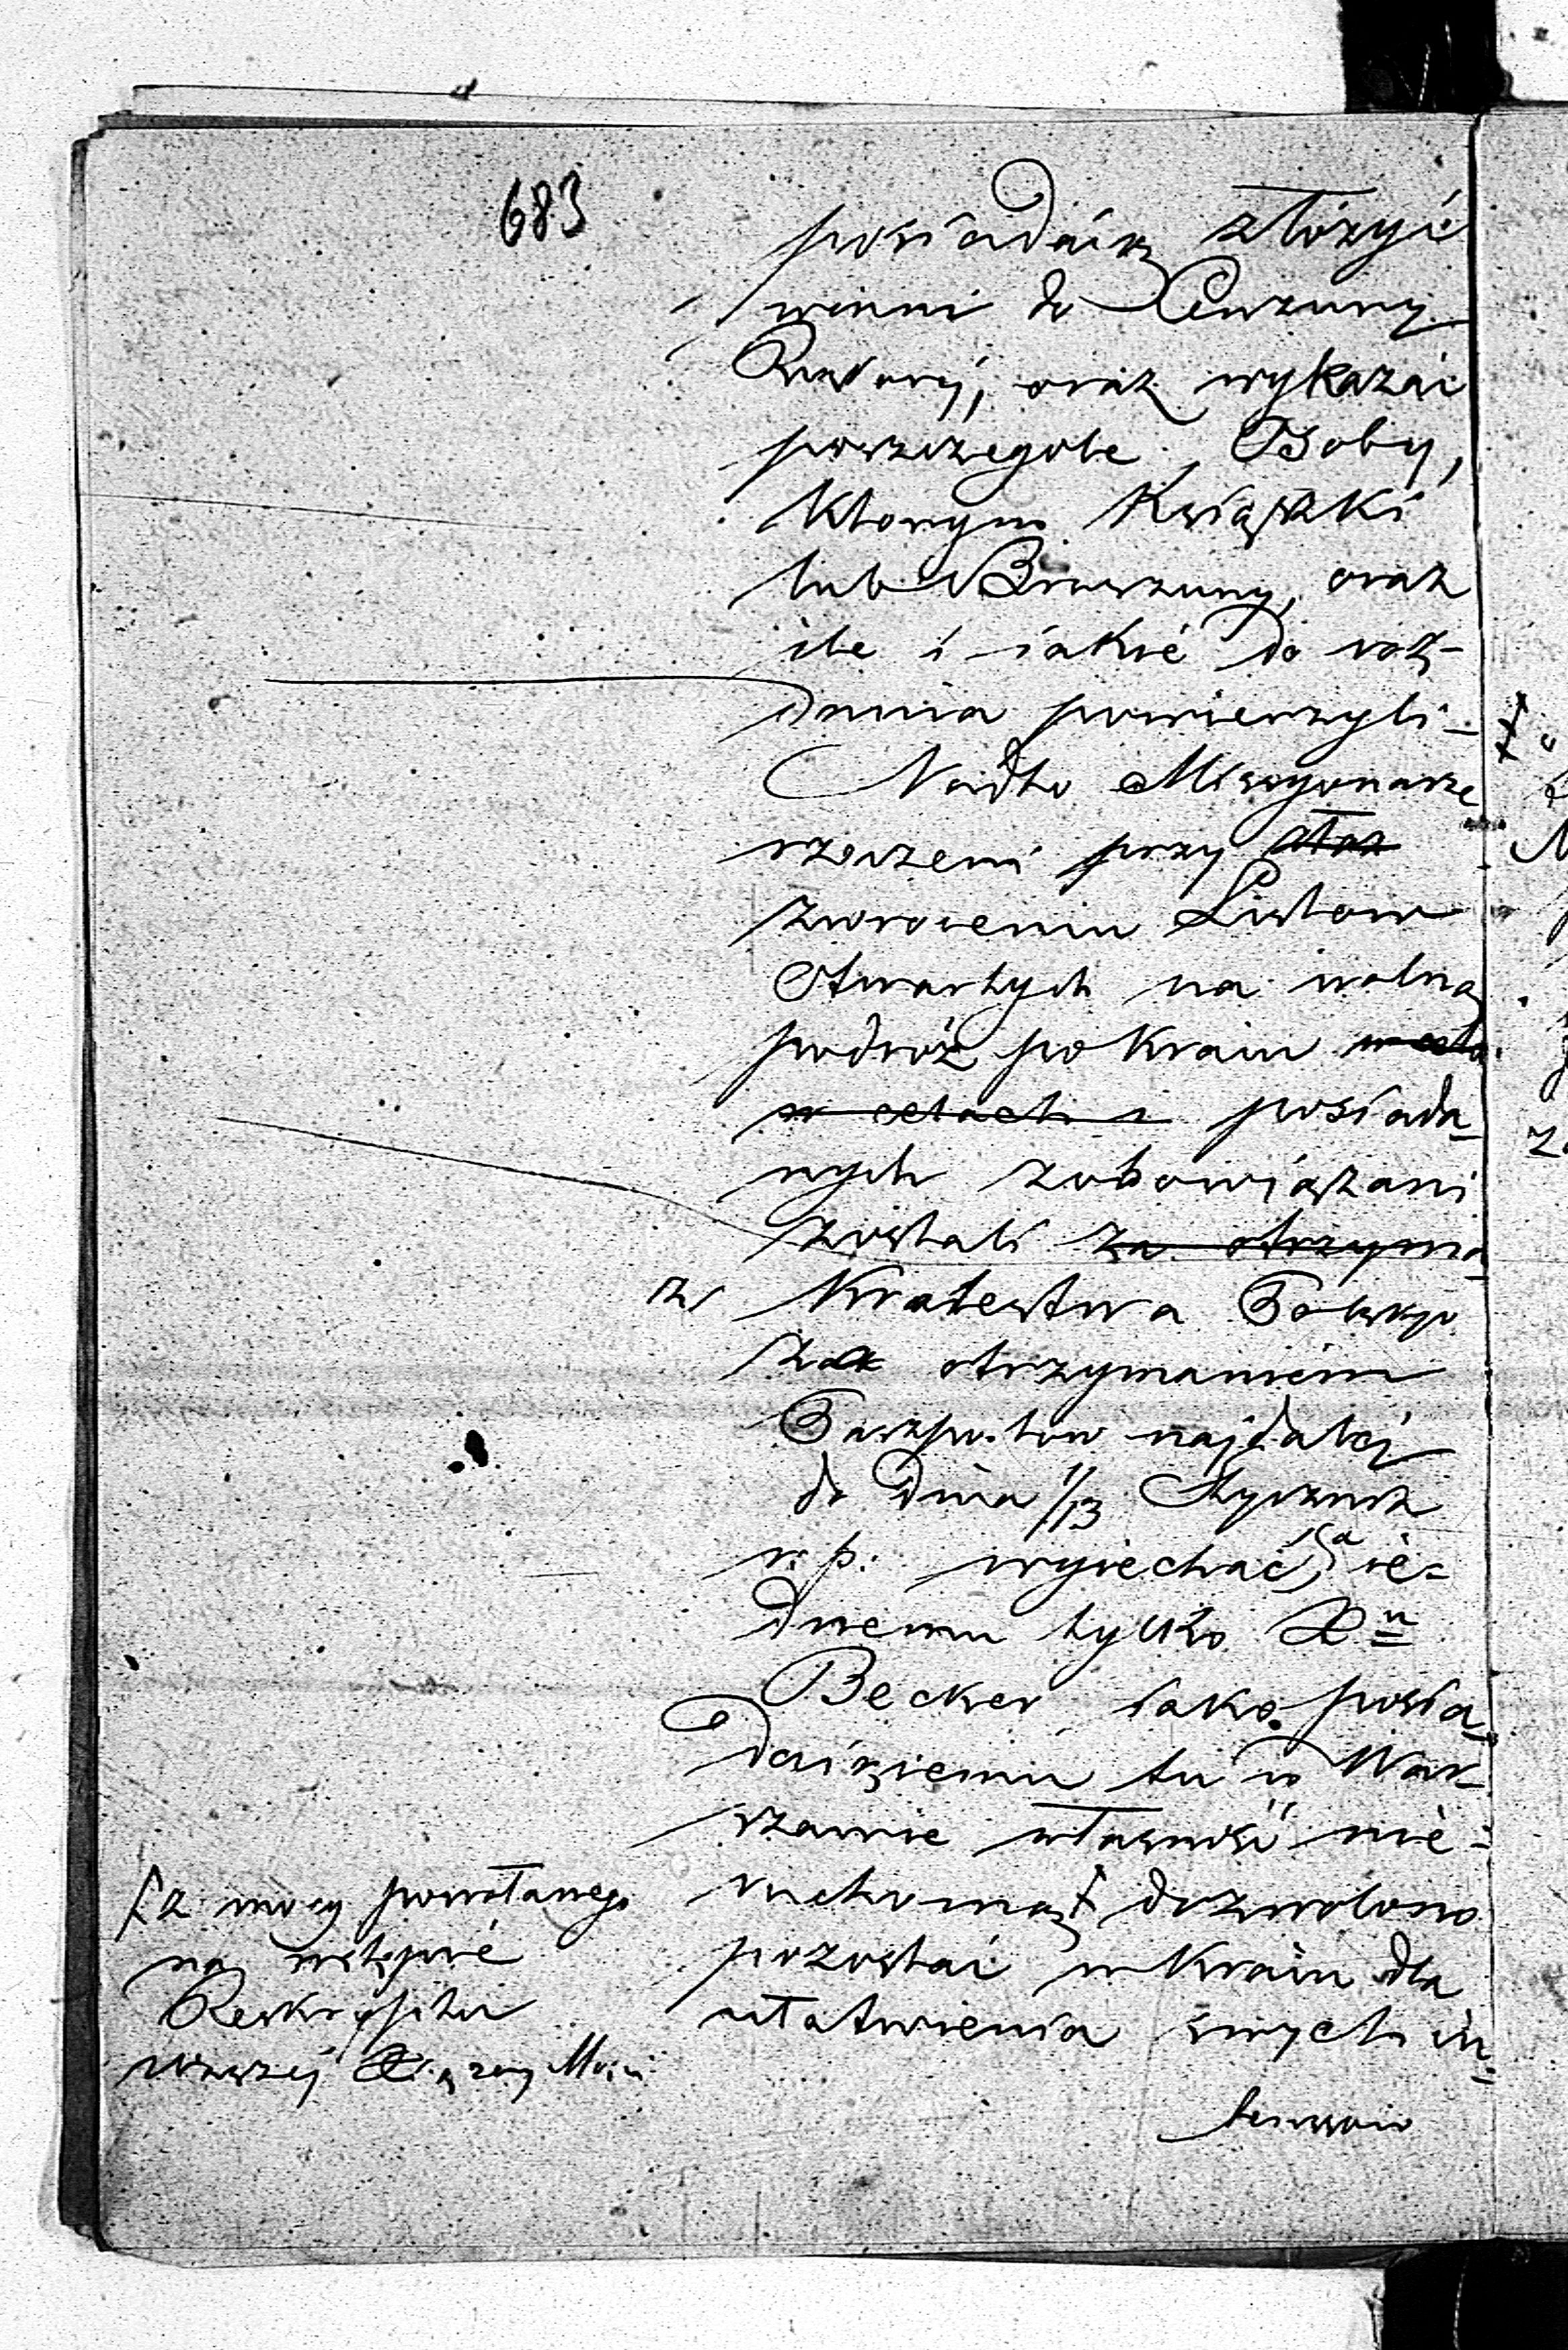 683
posiadaią złożyć
winni do Cenzury
Rządowéj, oraz wykazać
poszczegole Osoby,
którym Książki
lub Broszury, oraz
ile i iakie do roz-
dania powierzyli –
Nadto Missyonarze
rzeczeni przy złoz
zwroceniu Listow
Otwartych na wolną
podróż po Kraiu w celu
w celach i posiada-
nych zobowiązani
zostali za otrzyma-
z Krolestwa Polskgo
za otrzymaniem
Paszportow najdaléj
do dnia 1/13 Stycznia
r. p. wyiechać, a ie-
dnemu tylko Pu
Becker iako posia-
daiącemu tu w War-
szawie własność nie-
ruchomą dozwolono
pozostać w Kraiu dla
ułatwienia swych in-
teressow
z mocy powołanego
na wstępie
Reskryptu
Waszéj Xiążęcéj Mości